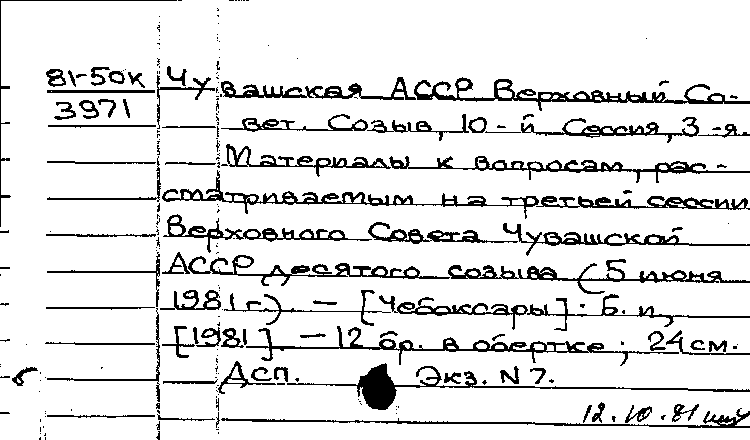 81-50к Чувашская АССР Верховный Со-
3971 вет. Созыв, 10-й Сессия, 3-я.
Материалы к вопросам, рас-
сматриваемым на третьей сессии
Верховного Совета Чувашской
АССР десятого созыва (5 июня
1981 г.) — [Чебоксары]: Б. и.,
[1981]. — 12 бр. в обертке; 24 см.
Дсп. Экз. N 7.
12.10.81